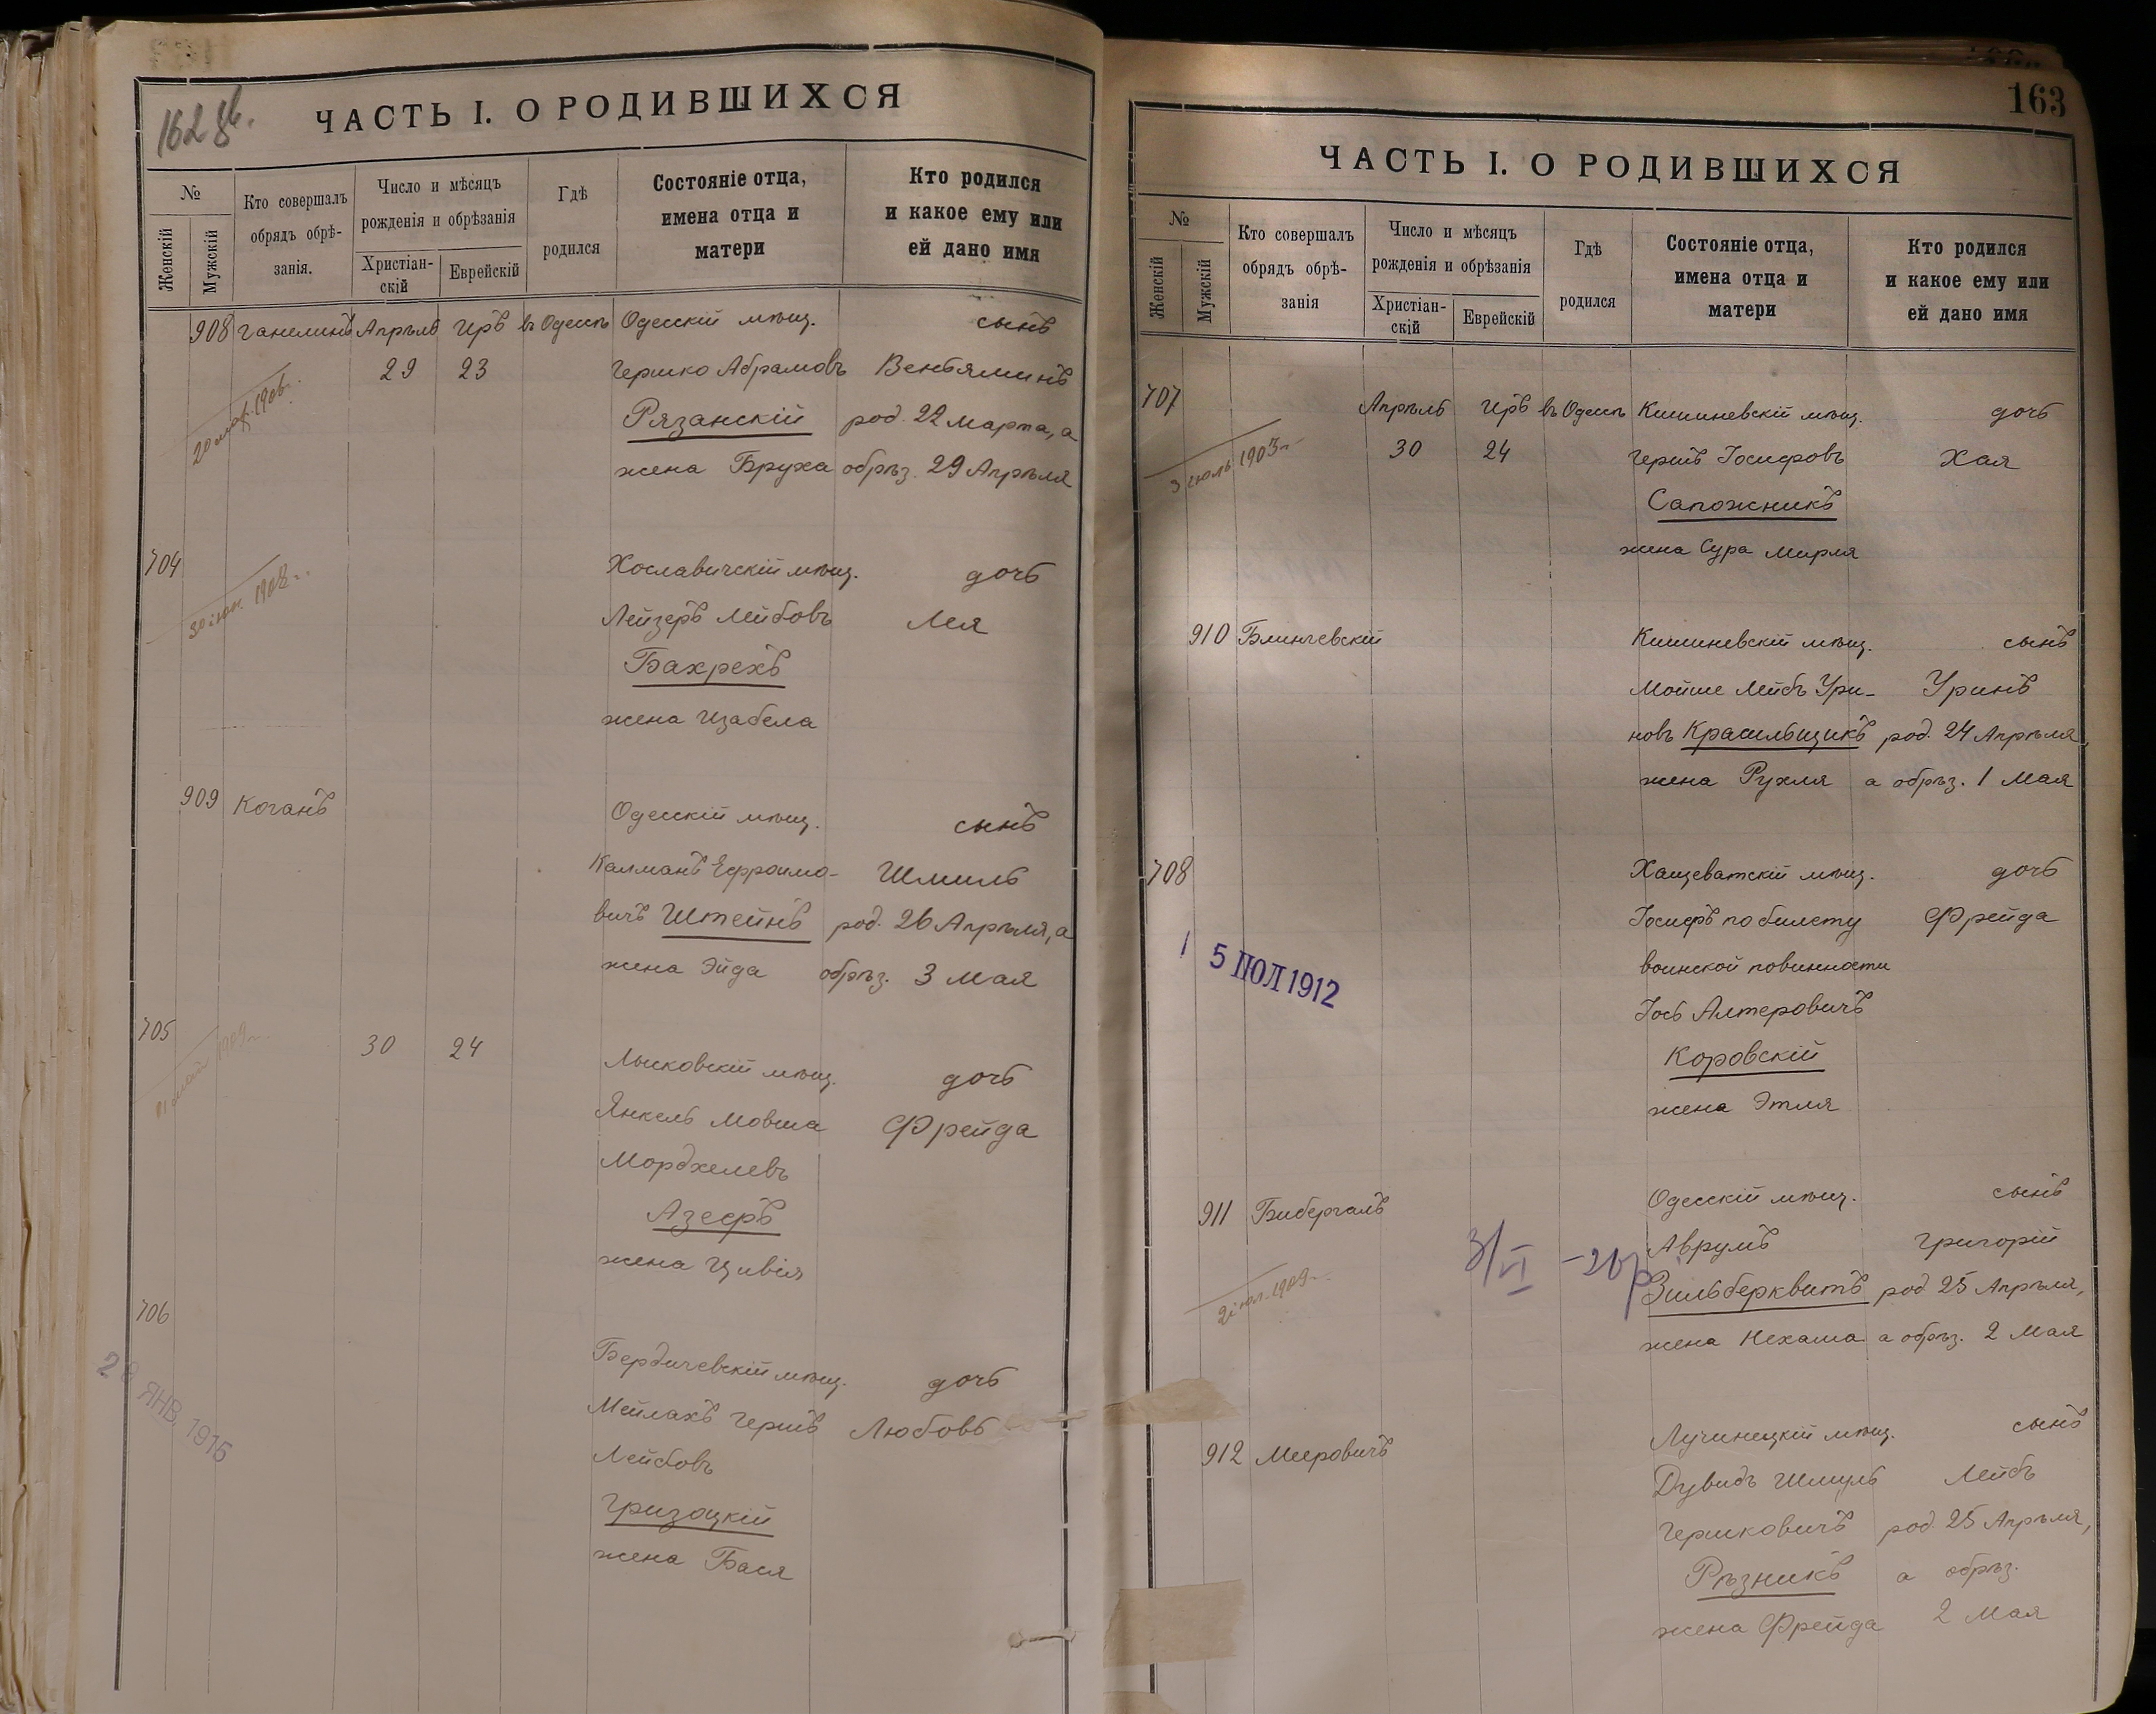 162 об.
ЧАСТЬ I. О РОДИВШИХСЯ
№
Женскій
Мужскій
Кто совершалъ
обрядъ обрѣ-
занія.
Число и мѣсяцъ
рожденія и обрѣзанія
Христіан-
скій
Еврейскій
Гдѣ
родился
Состояніе отца,
имена отца и
матери
Кто родился
и какое ему или
ей дано имя
908 Ганелинъ Апрѣль Иръ въ Одессѣ Одесскій мѣщ. сынъ
29 23 Гершко Абрамовъ Веньяминъ
Рязанскій род. 22 Марта, а
жена Бруха обрѣз. 29 Апрѣля
704 Хославичскій мѣщ. дочь
Лейзеръ Лейбовъ Лея
Бахрехъ
жена Изабела
909 Коганъ Одесскій мѣщ. сынъ
Калманъ Ефроимо- Шмиль
вичъ Штейнъ род. 26 Апрѣля, а
жена Эйда обрѣз. 3 Мая
705 30 24 Лысковскій мѣщ. дочь
Янкель Мовша Фрейда
Мордхелевъ
Азефъ
жена Цивія
706 Бердичевскій мѣщ. дочь
28 ЯНВ. 1915
Мейлахъ Гершъ Любовь
Лейбовъ
Гризоцкій
жена Бася
163
ЧАСТЬ I. О РОДИВШИХСЯ
№
Женскій
Мужскій
Кто совершалъ
обрядъ обрѣ-
занія
Число и мѣсяцъ
рожденія и обрѣзанія
Христіан-
скій
Еврейскій
Гдѣ
родился
Состояніе отца,
имена отца и
матери
Кто родился
и какое ему или
ей дано имя
707 Апрѣль Иръ въ Одессѣ Кишиневскій мѣщ. дочь
3 іюль 1903 г. 30 24 Гершъ Іосифовъ Хая
Сапожникъ
жена Сура Мирля
910 Блинчевскій Кишиневскій мѣщ. сынъ
Мойше Лейбъ Ури- Уринъ
новъ Красильщикъ род. 24 Апрѣля,
жена Рухля а обрѣз. 1 Мая
708 Хащеватскій мѣщ. дочь
Іосифъ по билету Фрейда
воинской повинности
5 ІЮЛ 1912
Іось Алтеровичъ
Коровскій
жена Этля
911 Бибергалъ Одесскій мѣщ. сынъ
3/VI Аврумъ Григорій
Зильберквитъ род 25 Апрѣля,
жена Нехама а обрѣз. 2 Мая
912 Мееровичъ Лучинецкій мѣщ. сынъ
Дувидъ Шмуль Лейбъ
Гершковичъ род. 25 Апрѣля,
Рѣзникъ а обрѣз.
жена Фрейда 2 Мая